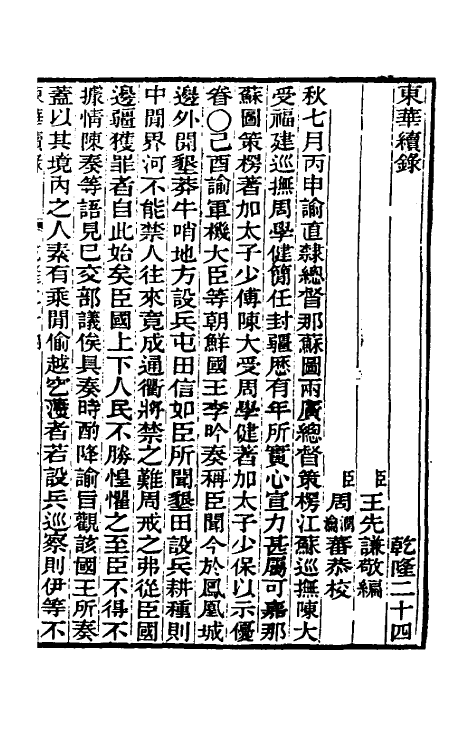 東華續錄 乾隆二十四
臣王先謙敬編
臣周潤蕃周瀹蕃恭校
秋七月丙申諭直隸總督那蘇圖兩廣總督策楞江蘇巡撫陳大
受福建巡撫周學健簡任封疆歷有年所實心宣力甚屬可嘉那
蘇圖策楞著加太子少傅陳大受周學健著加太子少保以示優
眷〇己酉諭軍機大臣等朝鮮國王李昑奏稱臣聞今於鳳凰城
邊外開墾莽牛哨地方設兵屯田信如臣所聞墾田設兵耕種則
中間界河不能禁人往來竟成通衢將禁之難周戒之弗從臣國
邊疆獲罪者自此始矣臣國上下人民不勝惶懼之至臣不得不
據情陳奏等語見已交部議俟具奏時酌降諭旨觀該國王所奏
蓋以其境內之人素有乘間偷越之獘者若設兵巡察則伊等不